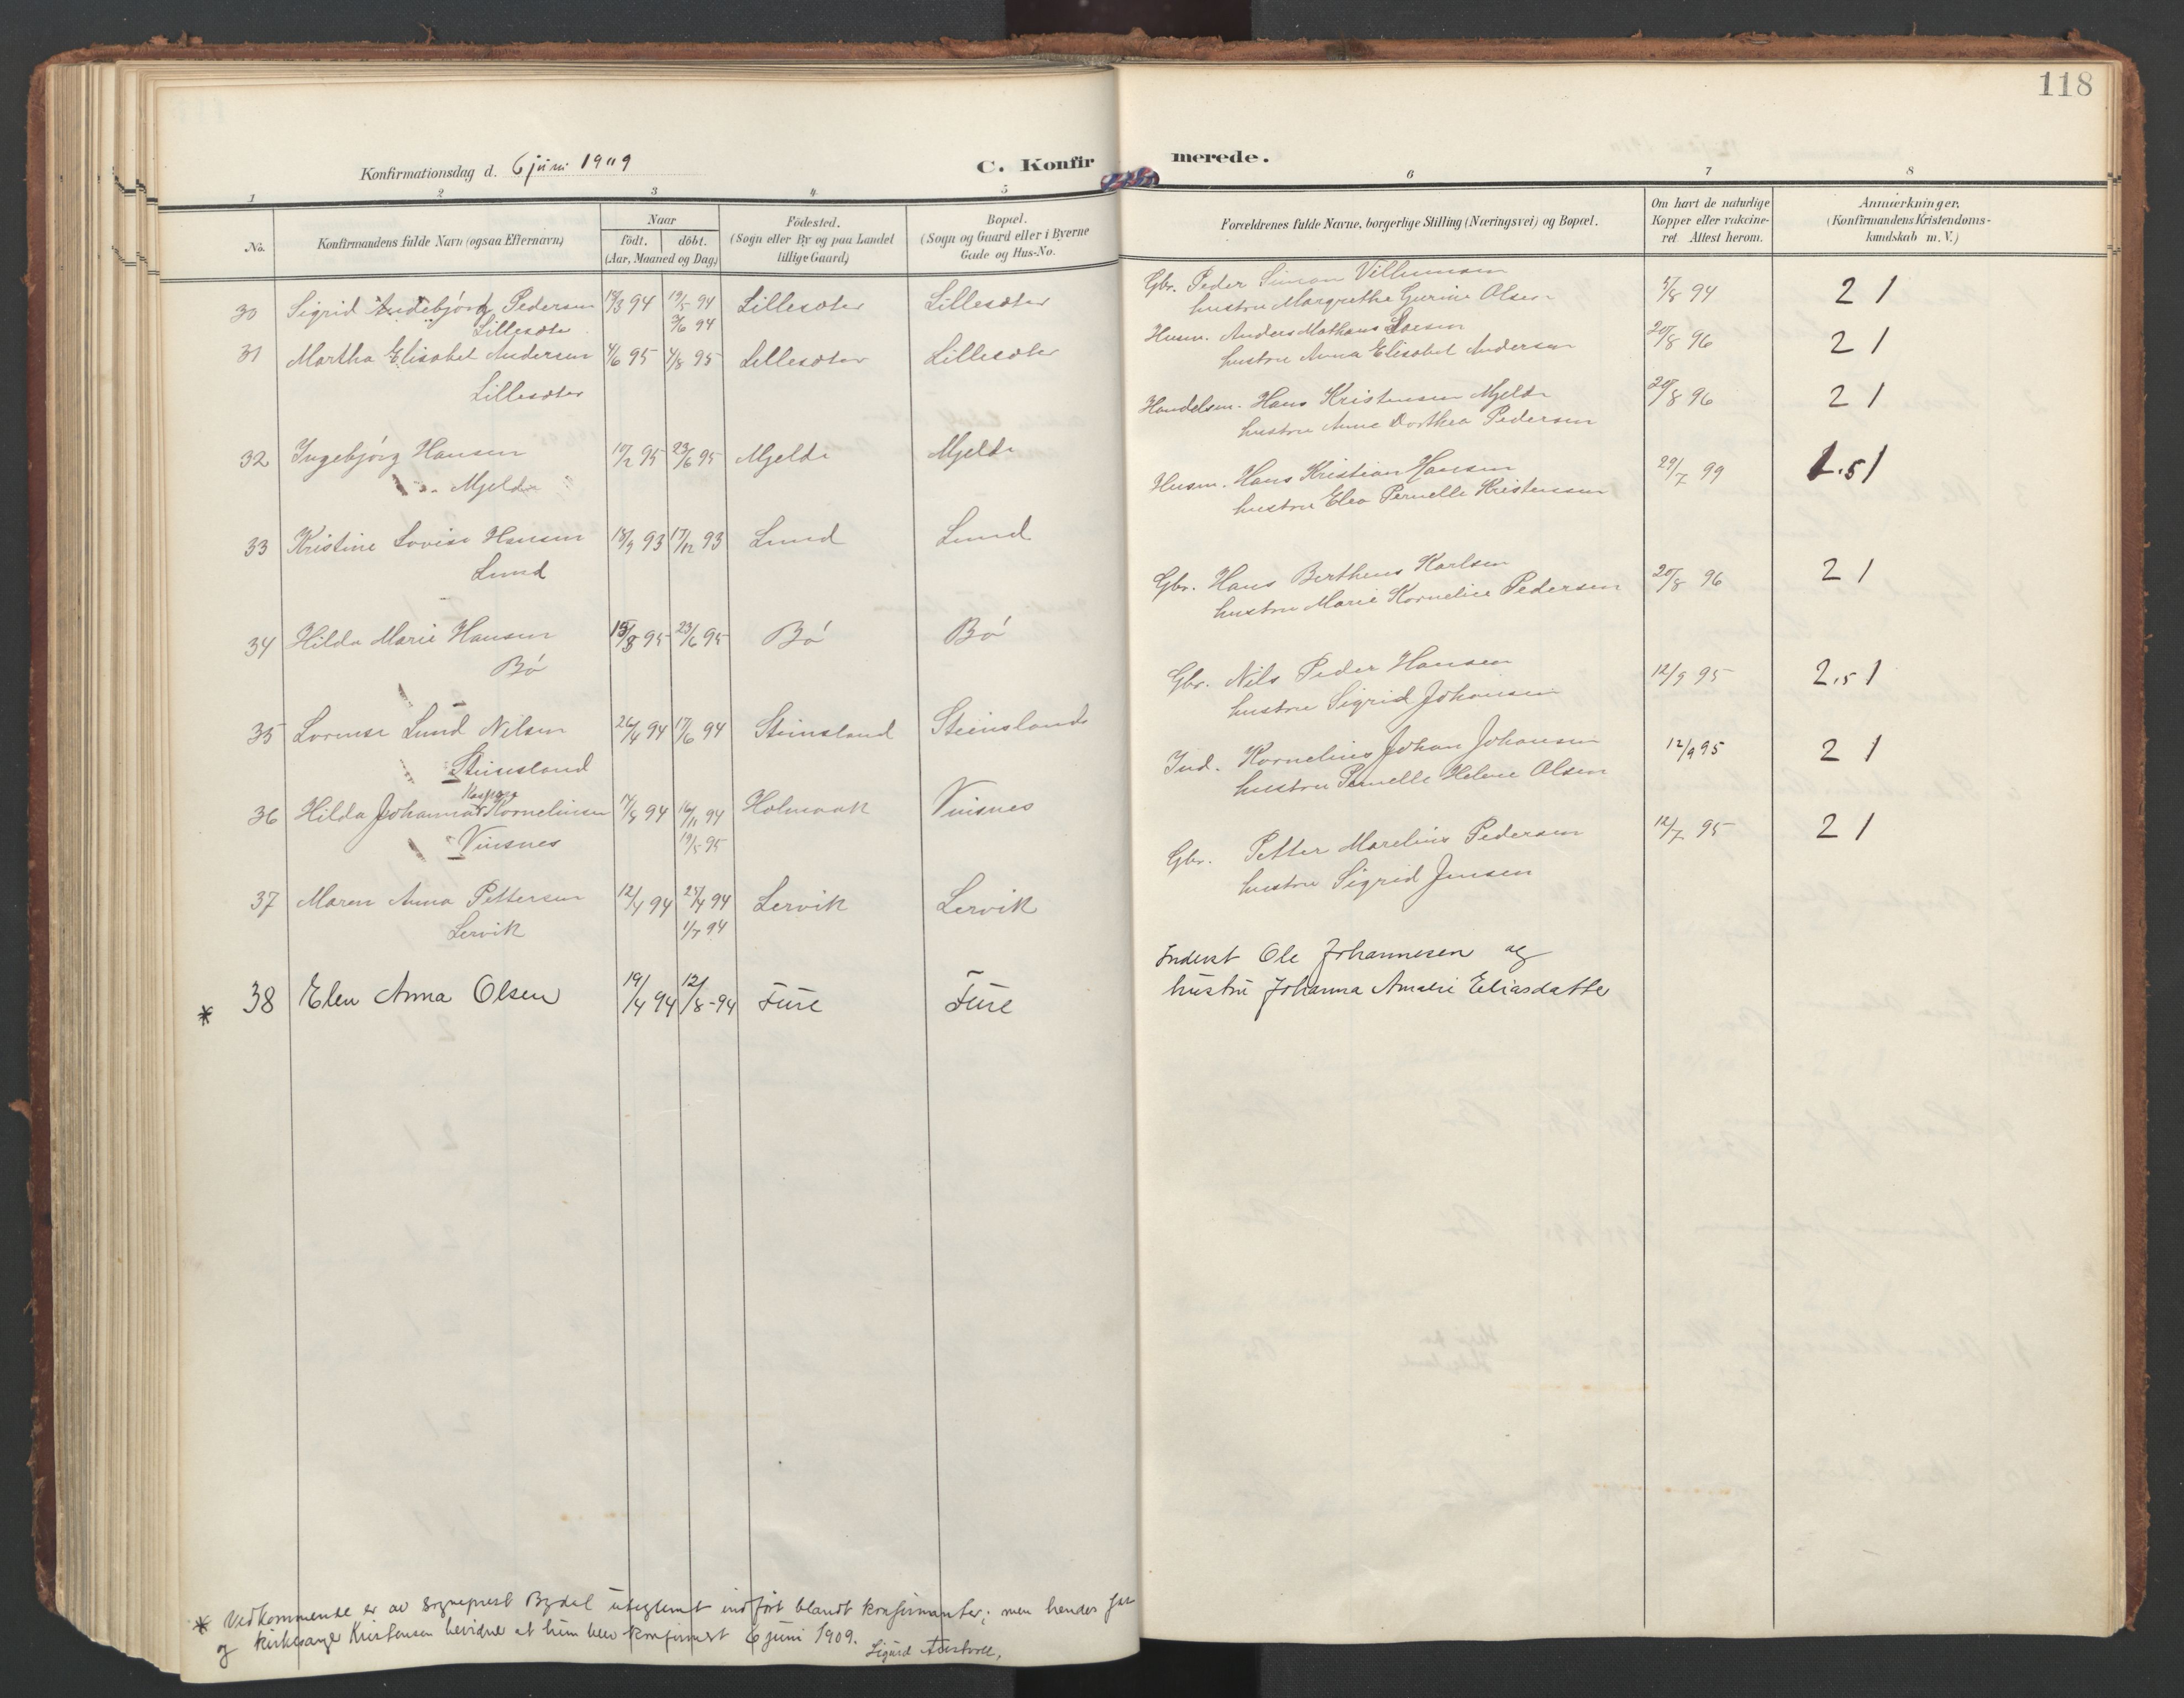 118
Konfirmationsdag d. 6 juni 1909
C. Konfirmerede.
1 2 3 4 5 6 7 8
No.
Konfirmandens fulde Navn (ogsaa Efternavn)
Naar
födt. döbt.
(Aar, Maaned og Dag)
Födested.
(Sogn eller By og paa Landet
tillige Gaard)
Bopæl.
(Sogn og Gaard eller i Byerne
Gade og Hus-No.
Forældrenes fulde Navne, borgerlige Stilling (Næringsvei) og Bopæl.
Om havt de naturlige
Kopper eller vakcine-
ret Attest herom.
Anmærkninger.
(Konfirmandens Kristendoms-
kundskab m. V.)
30 Sigrid Pedersen 94 19/5 94 Lillesæter Lillesæter Gbr. Peder Simon Villumsen 94 2 1
Lillesæter 3/6 94 hustru Margrethe Gurine Olsen
31 Martha Elisabet Andersen 4/6 95 4/8 95 Lillesæter Lillesæter Husm. Anders Mathæus 20/8 96 2 1
Lillesæter hustru Anna Elisabet Andersen
32 Ingebjørg Hansen 95 23/6 95 Mjelde Mjelde Handelsm. Hans Kristensen Mjelde 20/8 96 2 1
Mjelde hustru Anne Dorthea Pedersen
33 Kristine Lovise Hansen 18/9 93 17/12 93 Lund Lund Husm. Hans Kristian Hansen 29/7 99 1.5 1
Lund hustru Elen Pernelle Kristensen
34 Hilda Marie Hansen 15/3 95 23/6 95 Bø Bø Gbr. Hans Bertheus Karlsen 20/8 96 2 1
Bø hustru Marie Kornelie Pedersen
35 Lorense Lund Nilsen 26/4 94 17/6 94 Steinsland Steinsland Gbr. Nils Peder Hansen 12/9 95 2.5 1
Steinsland hustru Sigrid Johansen
Kaspara
36 Hilda Johanna Korneliusen 17/8 94 16/11 94 Holmaak Vinsnes Ind. Kornelius Johan Johansen 12/9 95 2 1
Vinsnes 19/5 95 hustru Pernelle Helene Olsen
37 Maren Anna Pettersen 12/4 94 25/4 94 Lervik Lervik Gbr. Petter Marelius Pedersen 12/7 95 2 1
Lervik 1/7 94 hustru Sigrid Jensen
* 38 Elen Anna Olsen 19/4 94 12/8-94 Fure Fure Inderst Ole Johannesen og
hustru Johanna Amalie Eliasdatter
* Vedkommende er av sogneprest Bydal uteglemt indført blandt konfirmanter; men hendes far
og kirkesanger Kristensen bevidner at hun blev konfirmert 6 juni 1909. Sigurd